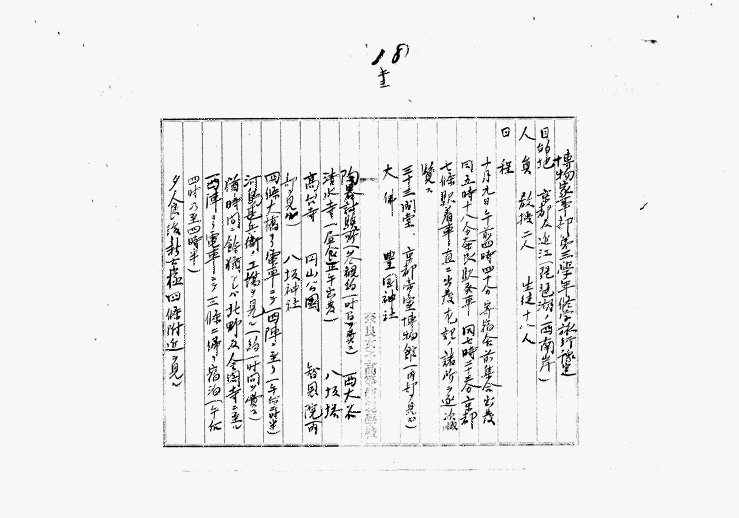 18
博物家事部第三学年修学旅行
目的地 京都及近江琵琶湖ノ西南岸
人員 教授二人 生徒十八人
日程
十月九日午前四時四十分寄宿舎前集合出発
同五時十八分奈良駅発車 同七時二十分京都
七條駅着車 直ニ出発左記ノ諸所ヲ逐次
覧ス
三十三間堂、京都帝室博物館(内部ヲ見ル)
大佛 豊国神社
陶器試験所(参観約一時間ヲ費ス) 西大谷
清水寺(昼食正午出発) 八坂塔
高台寺 円山公園 智恩院内
部ヲ見ル 八坂神社
四條大橋ヨリ電車ニテ西陣ニ至リ(午后
河島甚兵衛ノ工場ヲ見ル(約一時間ヲ費ス)
猶時間ニ余裕アレバ北野及金閣寺ニ至ル
西陣ヨリ電車ニテ三條ニ帰リ宿泊(午后
四時乃至四時半)
夕食後新京極四條附近ヲ見ル
奈良女子高等師範学校